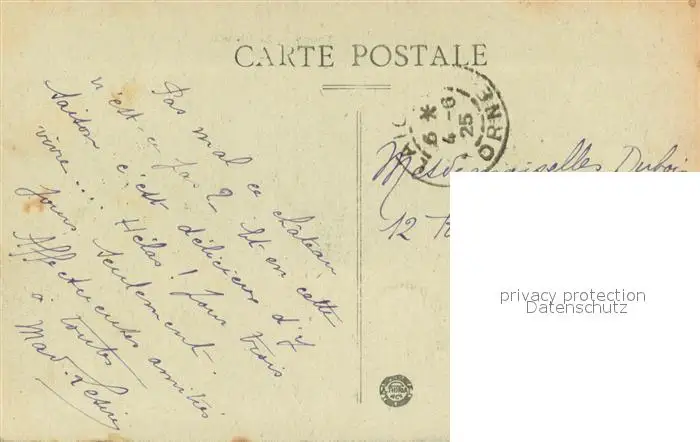 CARTE POSTALE
Pas mal ce château
n'est-ce pas ? Et en cette
saison c'est délicieux d'y
vivre... Hélas ! pour trois
jours seulement.
Affectueuses amitiés
à toutes
Mad.
* 6 *
4 - 6
25
ORNE
Mesdemoiselles Dubois
12
privacy protection
Datenschutz